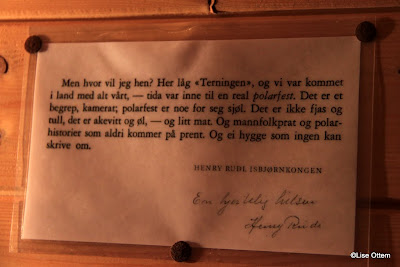 Men hvor vil jeg hen? Her låg «Terningen», og vi var kommet
i land med alt vårt, — tida var inne til en real polarfest. Det er et
begrep, kamerat; polarfest er noe for seg sjøl. Det er ikke fjas og
tull, det er akevitt og øl, — og litt mat. Og mannfolkprat og polar-
historier som aldri kommer på prent. Og ei hygge som ingen kan
skrive om.
HENRY RUDI, ISBJØRNKONGEN
En hjertelig hilsen
Henry Rudi
©Lise Ottem